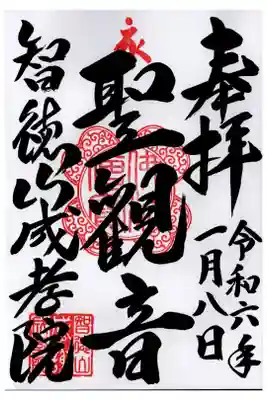 奉拝
令和六年
一月八日
聖観音
智徳山成孝院